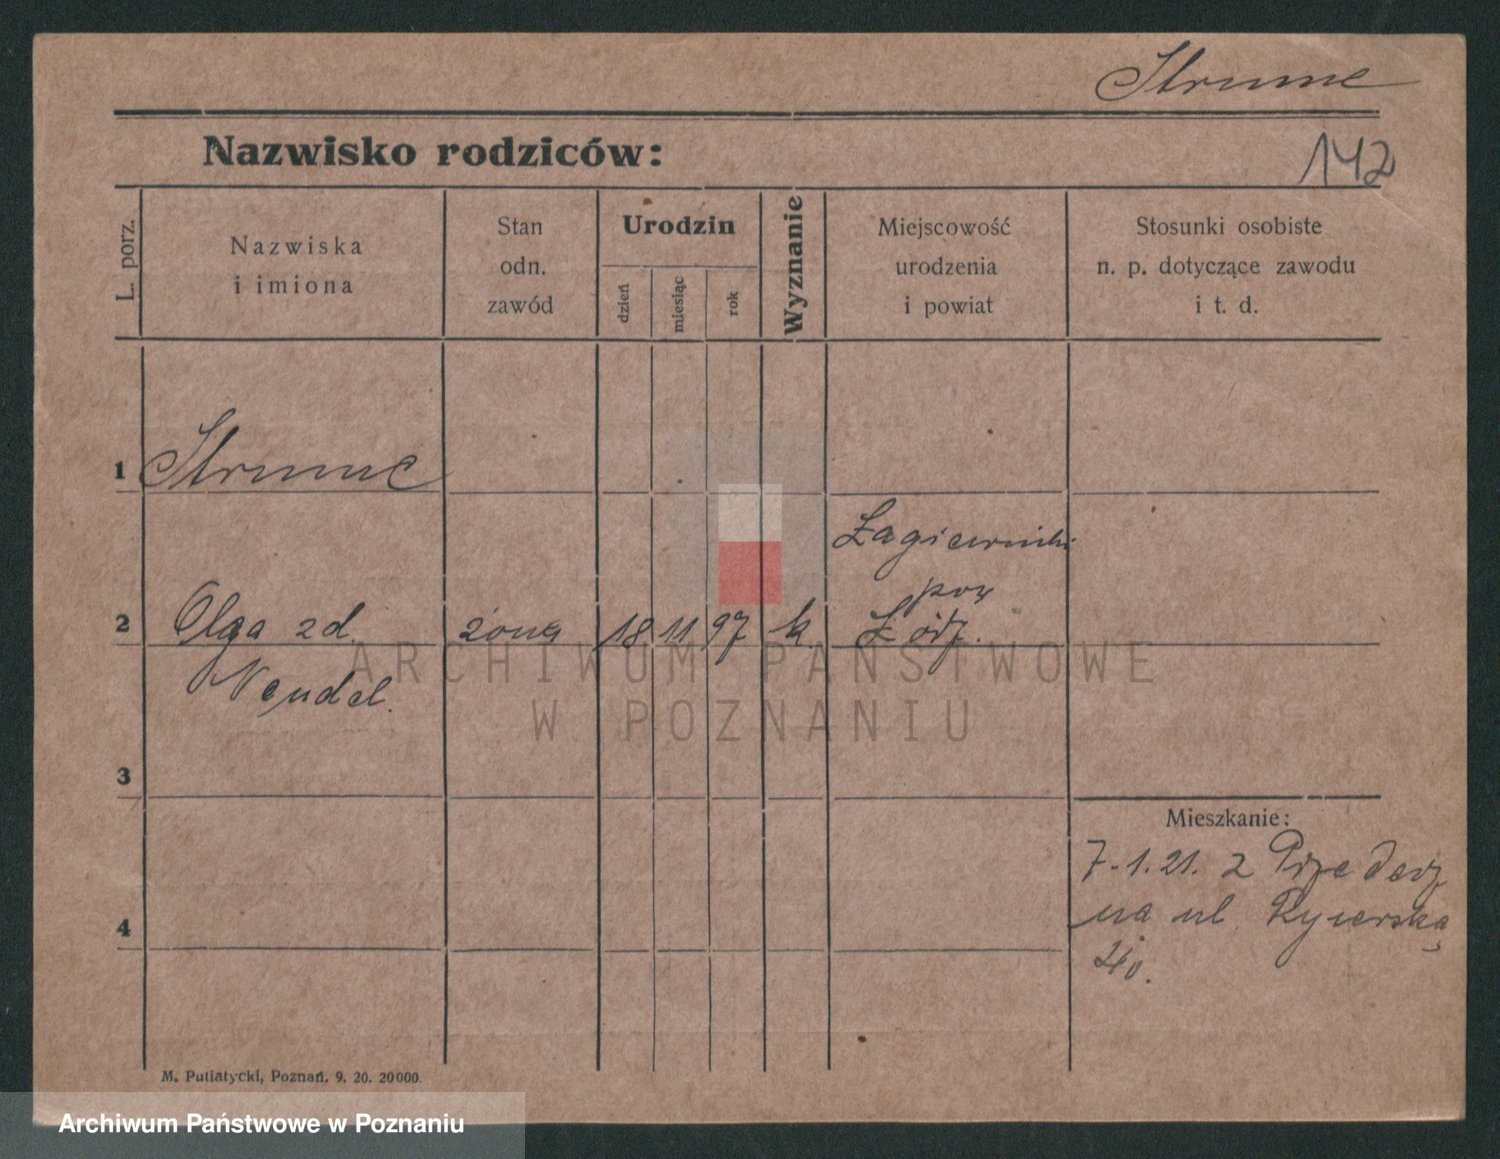 Strunc
Nazwisko rodziców:
142
L. porz.
Nazwiska
i imiona
Stan
odn.
zawód
Urodzin
dzień
miesiąc
rok
Wyznanie
Miejscowość
urodzenia
i powiat
Stosunki osobiste
n. p. dotyczące zawodu
i t. d.
1
2 Olga zd. żona 18 11 97 k.
Łagiewniki
pow
Łódź.
3
Mieszkanie:
7.1.21. z
na ul
4
40.
M. Putiatycki, Poznań. 9. 20. 20000.
ARCHIWUM PAŃSTWOWE
W POZNANIU
Archiwum Państwowe w Poznaniu